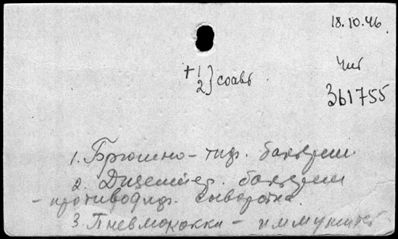 18.10.46.
Чит
361755
+ 1
2 } соавт
1. Брюшно-тиф. бактерии
2. Дизентер. бактерии
- противодиф. сыворотка
3. Пневмококки - иммунитет